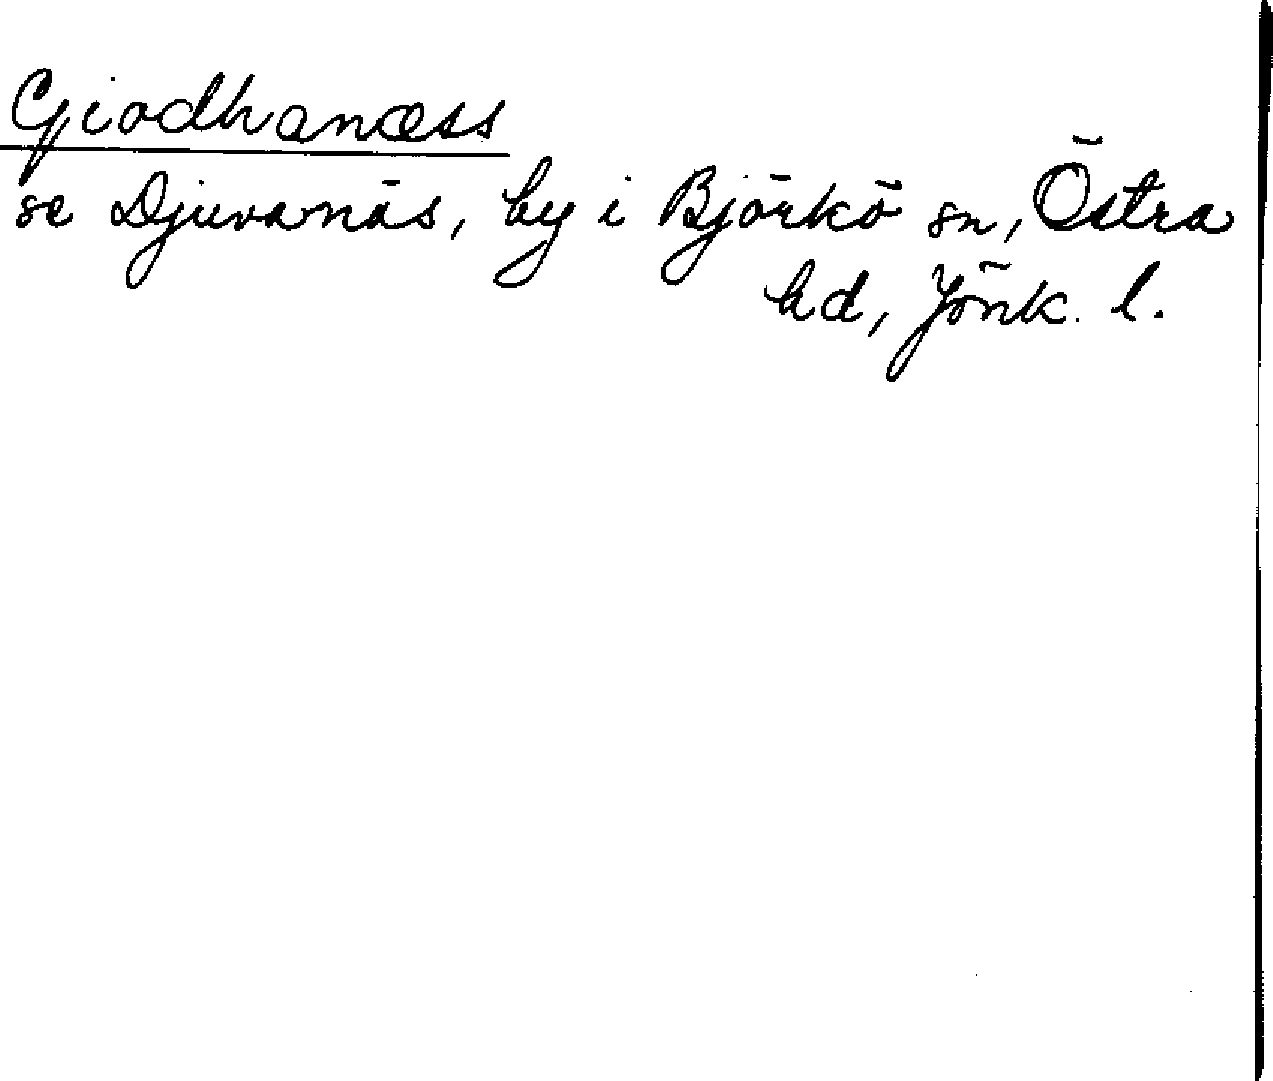 Giodhanæss
se Djuvanäs, by i Björkö sn, Östra
hd, Jönk. l.